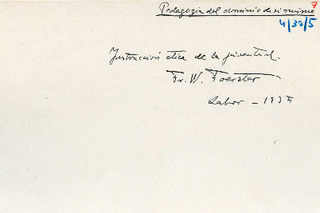 7
Pedagogía del dominio de sí mismo
4/33/5
Instrucción etica de la juventud.
Fr. W. Foerster
Labor - 193